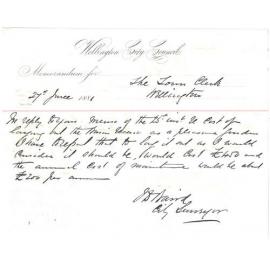 Wellington City Council,
Memorandum for
The Town Clerk
Wellington
27th June 1881
In reply to your memo of the 25 inst re Cost of
laying out the Basin Reserve as a pleasure garden
I have to report that to lay it out as I would
consider it should be, would cost
the annual cost of would be abt
£200 per annum
City Surveyor